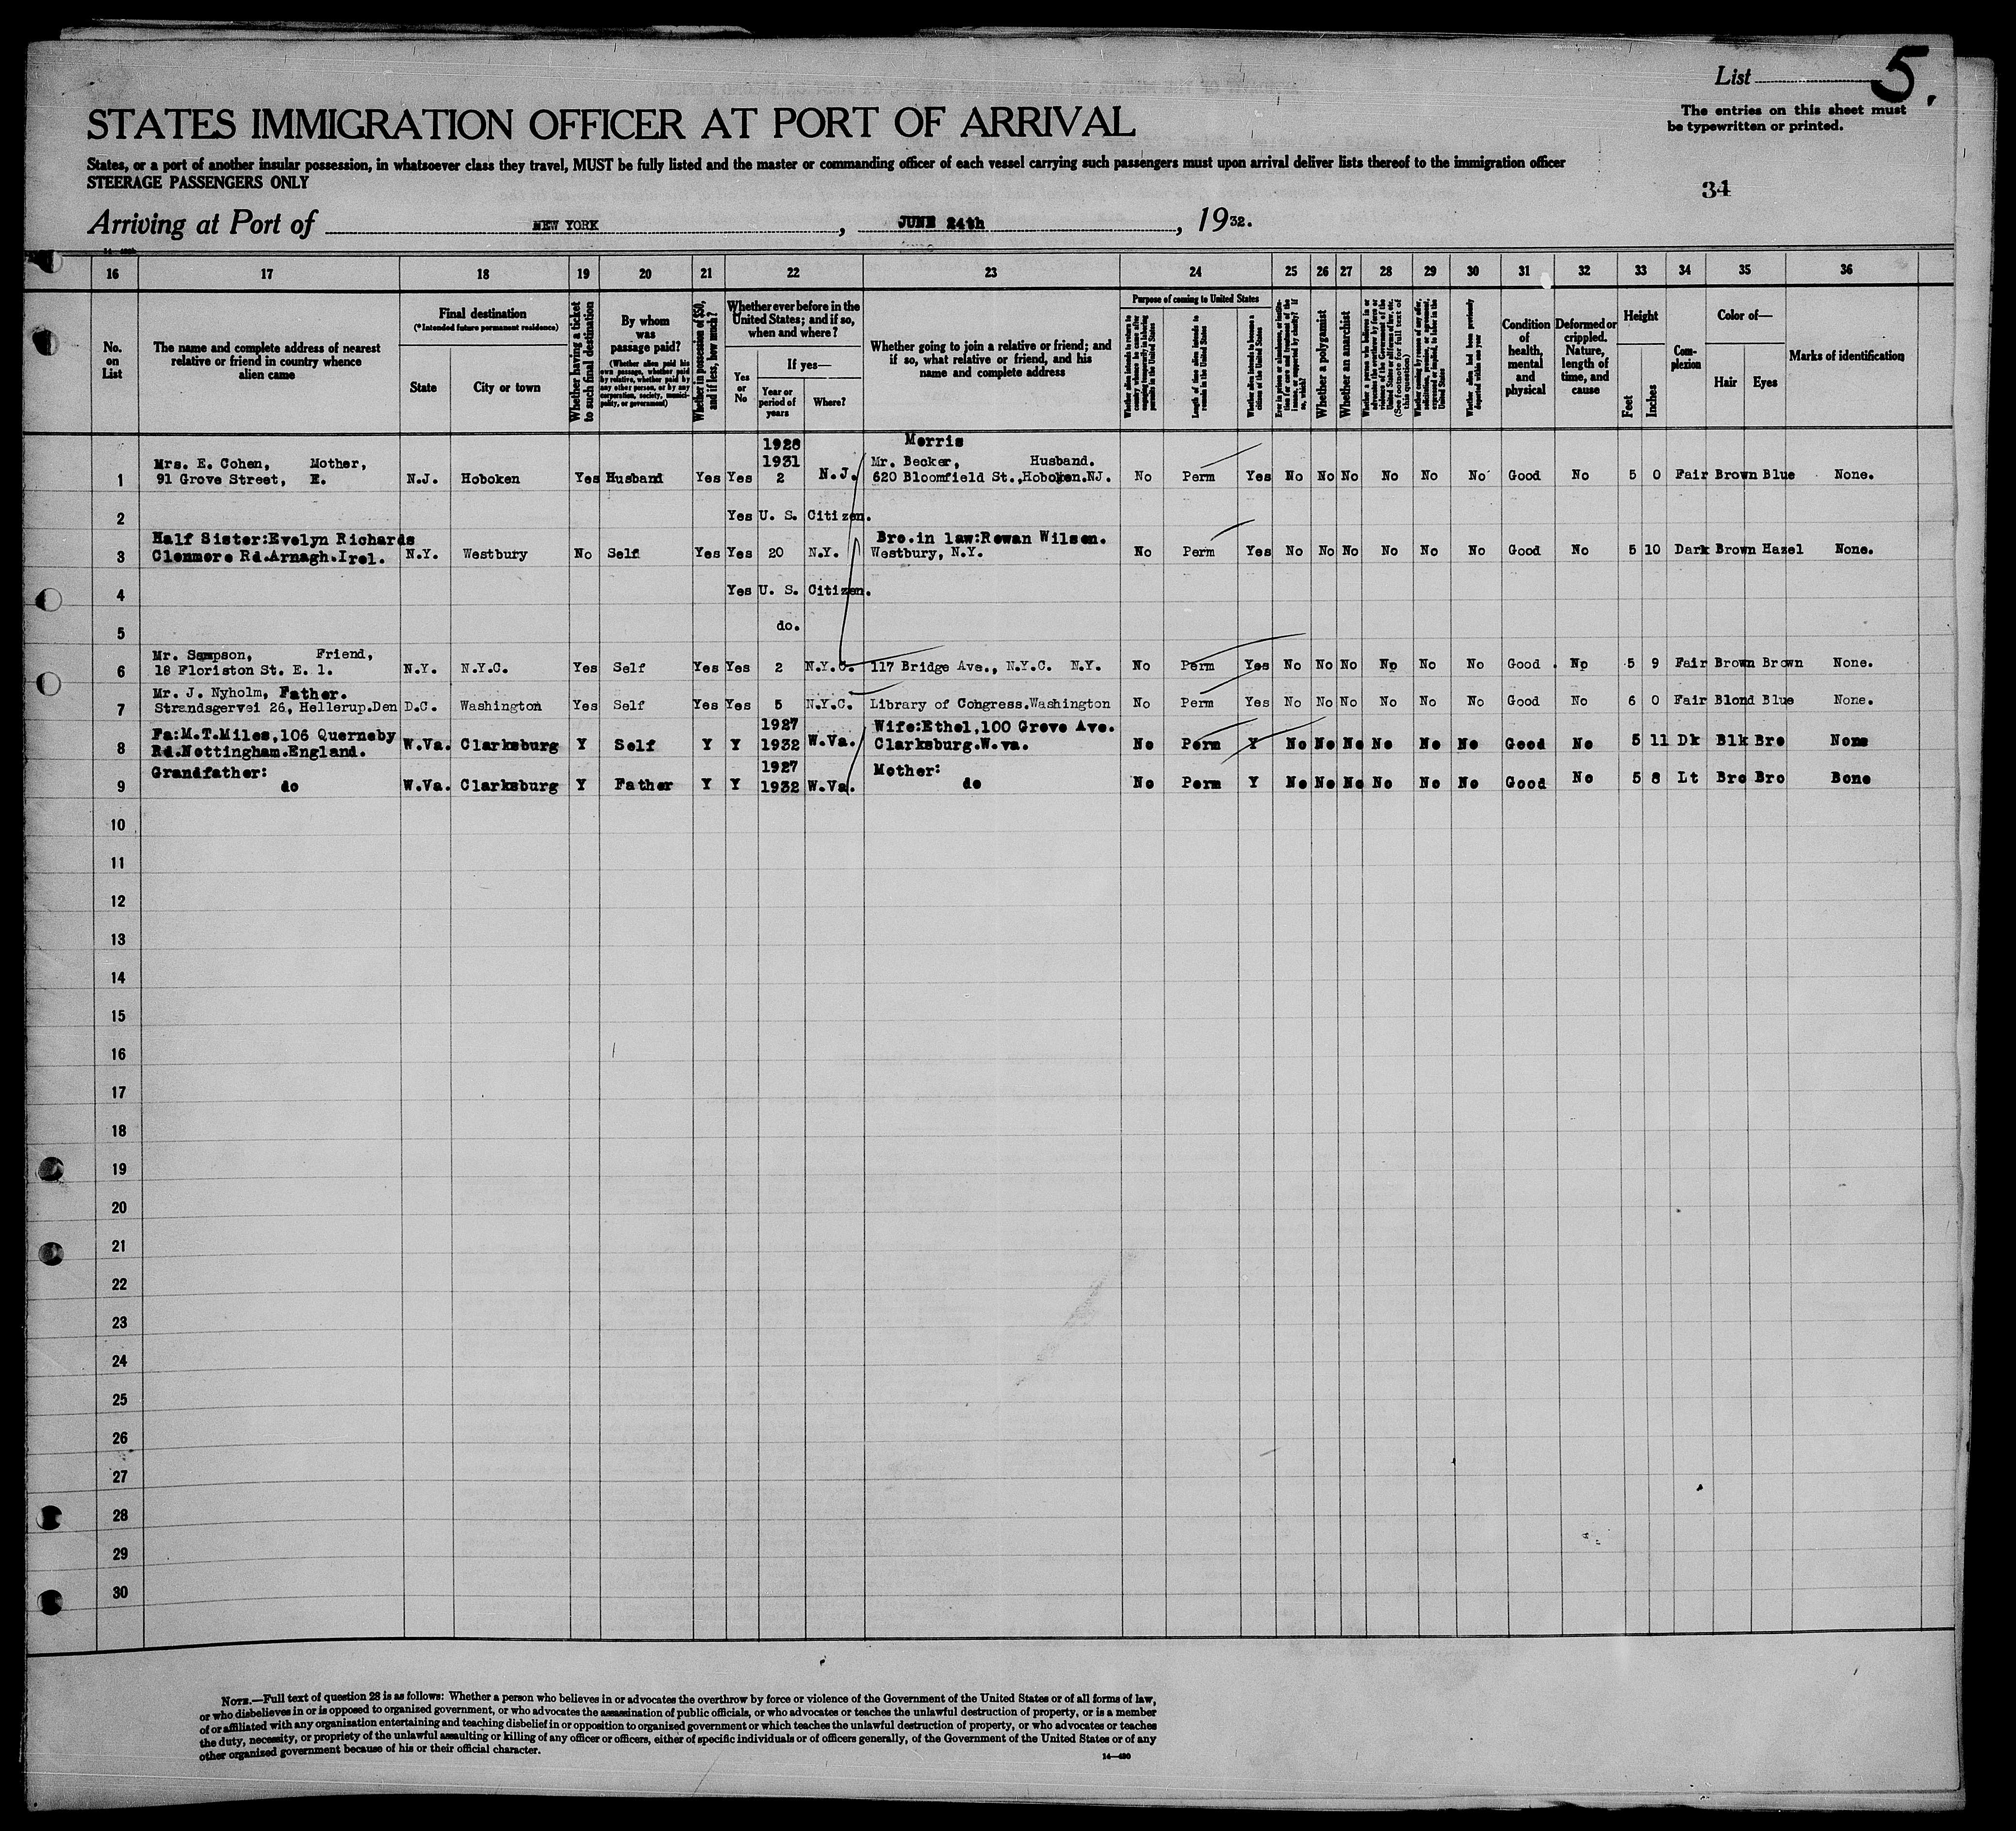 List 5.
The entries on this sheet must
be typewritten or printed.
STATES IMMIGRATION OFFICER AT PORT OF ARRIVAL
States, or a port of another insular possession, in whatsoever class they travel, MUST be fully listed and the master or commanding officer of each vessel carrying such passengers must upon arrival deliver lists thereof to the immigration officer
STEERAGE PASSENGERS ONLY
34
Arriving at Port of NEW YORK, JUNE 24th, 1932.
16 17 18 19 20 21 22 23 24 25 26 27 28 29 30 31 32 33 34 35 36
No. on List
The name and complete address of nearest relative or friend in country whence alien came
Final destination
(*Intended future permanent residence)
State
City or town
Whether having a ticket to such final destination
By whom was passage paid?
(Whether alien paid his own passage, whether paid by relative, whether paid by any other person, or by any corporation, society, municipality, or government)
Whether in possession of $50, and if less, how much?
Whether ever before in the United States; and if so, when and where?
Yes or No
If yes—
Year or period of years
Where?
Whether going to join a relative or friend; and if so, what relative or friend, and his name and complete address
Purpose of coming to United States
Length of time alien intends to remain in the United States
Whether alien intends to become a citizen of the United States
Whether a polygamist
Whether an anarchist
Whether alien had been previously deported within one year
Condition of health, mental and physical
Deformed or crippled. Nature, length of time, and cause
Height
Feet
Inches
Complexion
Color of—
Hair
Eyes
Marks of identification
1928 Morris
Mrs. E. Cohen, Mother, 1931 Mr. Becker, Husband.
1 91 Grove Street, E. N.J. Hoboken Yes Husband Yes Yes 2 N.J. 620 Bloomfield St., Hoboken.NJ. No Perm Yes No No No No No No Good No 5 0 Fair Brown Blue None.
2 Yes U. S. Citizen.
Half Sister:Evelyn Richards Bro.in law:Rowan Wilson.
3 Clenmore Rd.Arnagh.Irel. N.Y. Westbury No Self Yes Yes 20 N.Y. Westbury, N.Y. No Perm Yes No No No No No No Good No 5 10 Dark Brown Hazel None.
4 Yes U. S. Citizen.
5 do.
Mr. Sampson, Friend,
6 18 Floriston St. E. 1. N.Y. N.Y.C. Yes Self Yes Yes 2 N.Y.C. 117 Bridge Ave., N.Y.C. N.Y. No Perm Yes No No No No No No Good No 5 9 Fair Brown Brown None.
Mr. J. Nyholm, Father.
7 Strandsgervei 26, Hellerup.Den D.C. Washington Yes Self Yes Yes 5 N.Y.C. Library of Congress.Washington No Perm Yes No No No No No No Good No 6 0 Fair Blond Blue None.
Fa:M.T.Miles,106 Querneby 1927 Wife:Ethel,100 Grove Ave.
8 Rd.Nottingham.England. W.Va. Clarksburg Y Self Y Y 1932 W.Va. Clarksburg.W.va. No Perm Y No No No No No No Good No 5 11 Dk Blk Bro None
Grandfather: 1927 Mother:
9 do W.Va. Clarksburg Y Father Y Y 1932 W.Va. do No Perm Y No No No No No No Good No 5 8 Lt Bro Bro Bone
10
11
12
13
14
15
16
17
18
19
20
21
22
23
24
25
26
27
28
29
30
NOTE.—Full text of question 28 is as follows: Whether a person who believes in or advocates the overthrow by force or violence of the Government of the United States or of all forms of law,
or who disbelieves in or is opposed to organized government, or who advocates the assassination of public officials, or who advocates or teaches the unlawful destruction of property, or is a member
of or affiliated with any organization entertaining and teaching disbelief in or opposition to organized government or which teaches the unlawful destruction of property, or who advocates or teaches
the duty, necessity, or propriety of the unlawful assaulting or killing of any officer or officers, either of specific individuals or of officers generally, of the Government of the United States or of any
other organized government because of his or their official character.
14—480